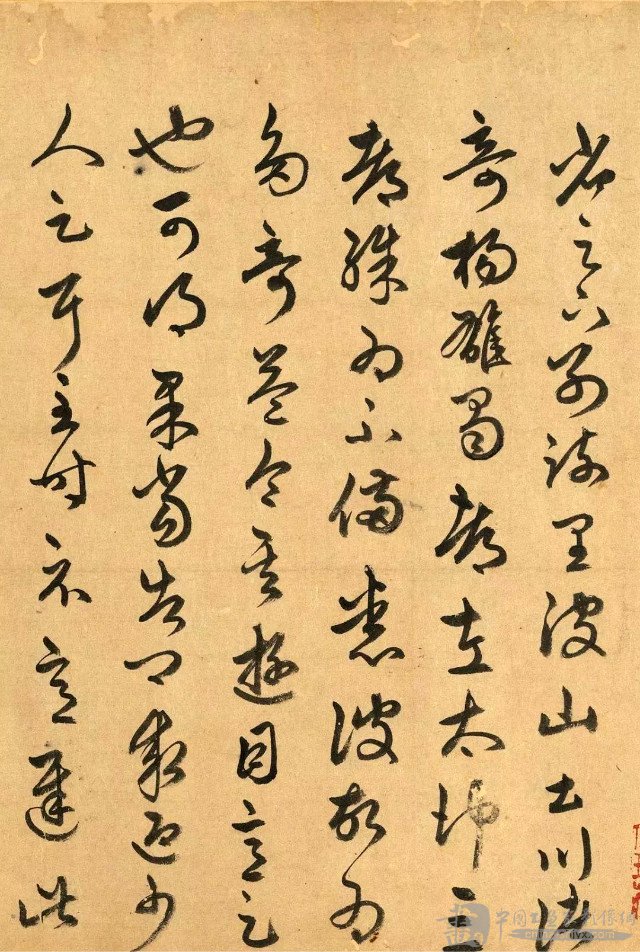 省足下別疏具彼山土川諸
奇楊雄蜀都左太沖三
都殊為不備悉彼故為
多奇益令其遊目意足
也可得果當告卿求迎少
人足耳至時示意遲此